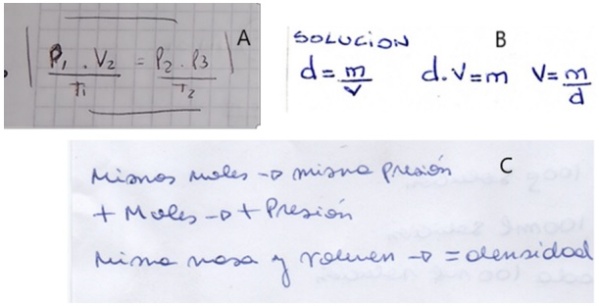 P₁ . V₂ / T₁ = P₂ . P3 / T₂
A
SOLUCION
B
d = m/V d.V=m V= m/d
C
Mismos moles → misma presión
+ Moles → + Presión
Misma masa y volumen → = densidad